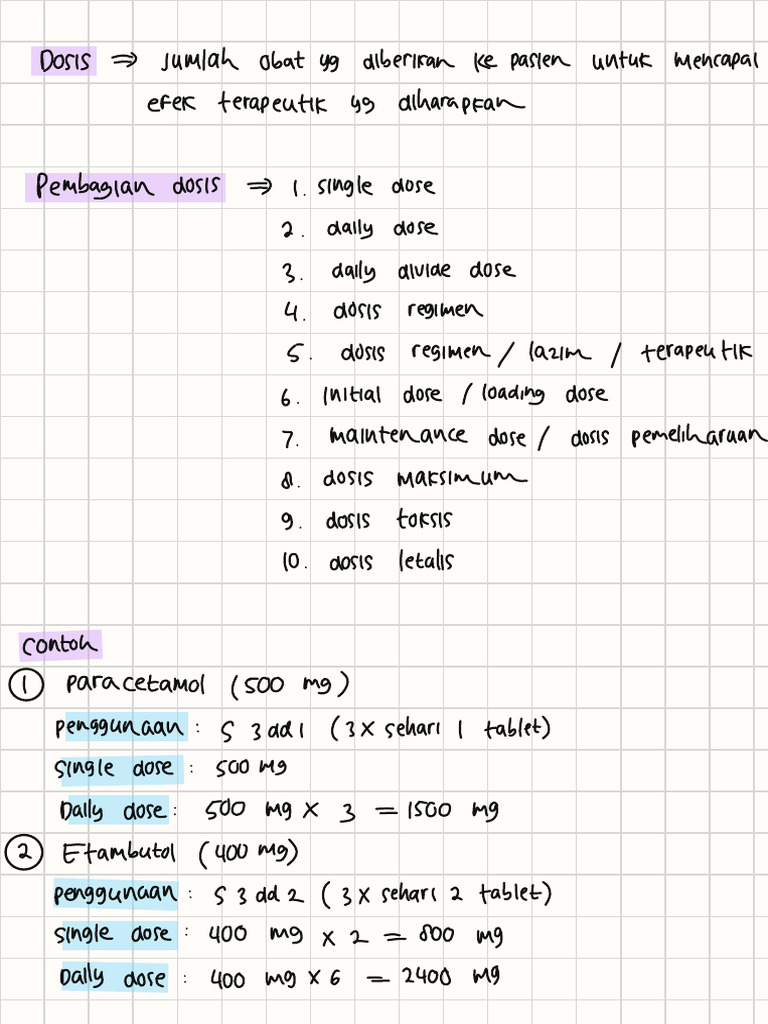 Dosis ⇒ jumlah obat yg diberikan ke pasien untuk mencapai
efek terapeutik yg diharapkan
Pembagian dosis ⇒ 1. single dose
2. daily dose
3. daily divide dose
4. dosis regimen
5. dosis regimen / lazim / terapeutik
6. initial dose / loading dose
7. maintenance dose / dosis pemeliharaan
8. dosis maksimum
9. dosis toksis
10. dosis letalis
Contoh
① paracetamol (500 mg)
penggunaan : S 3 dd 1 (3x sehari 1 tablet)
single dose : 500 mg
Daily dose : 500 mg x 3 = 1500 mg
② Etambutol (400 mg)
penggunaan : S 3 dd 2 (3x sehari 2 tablet)
single dose : 400 mg x 2 = 800 mg
Daily dose : 400 mg x 6 = 2400 mg